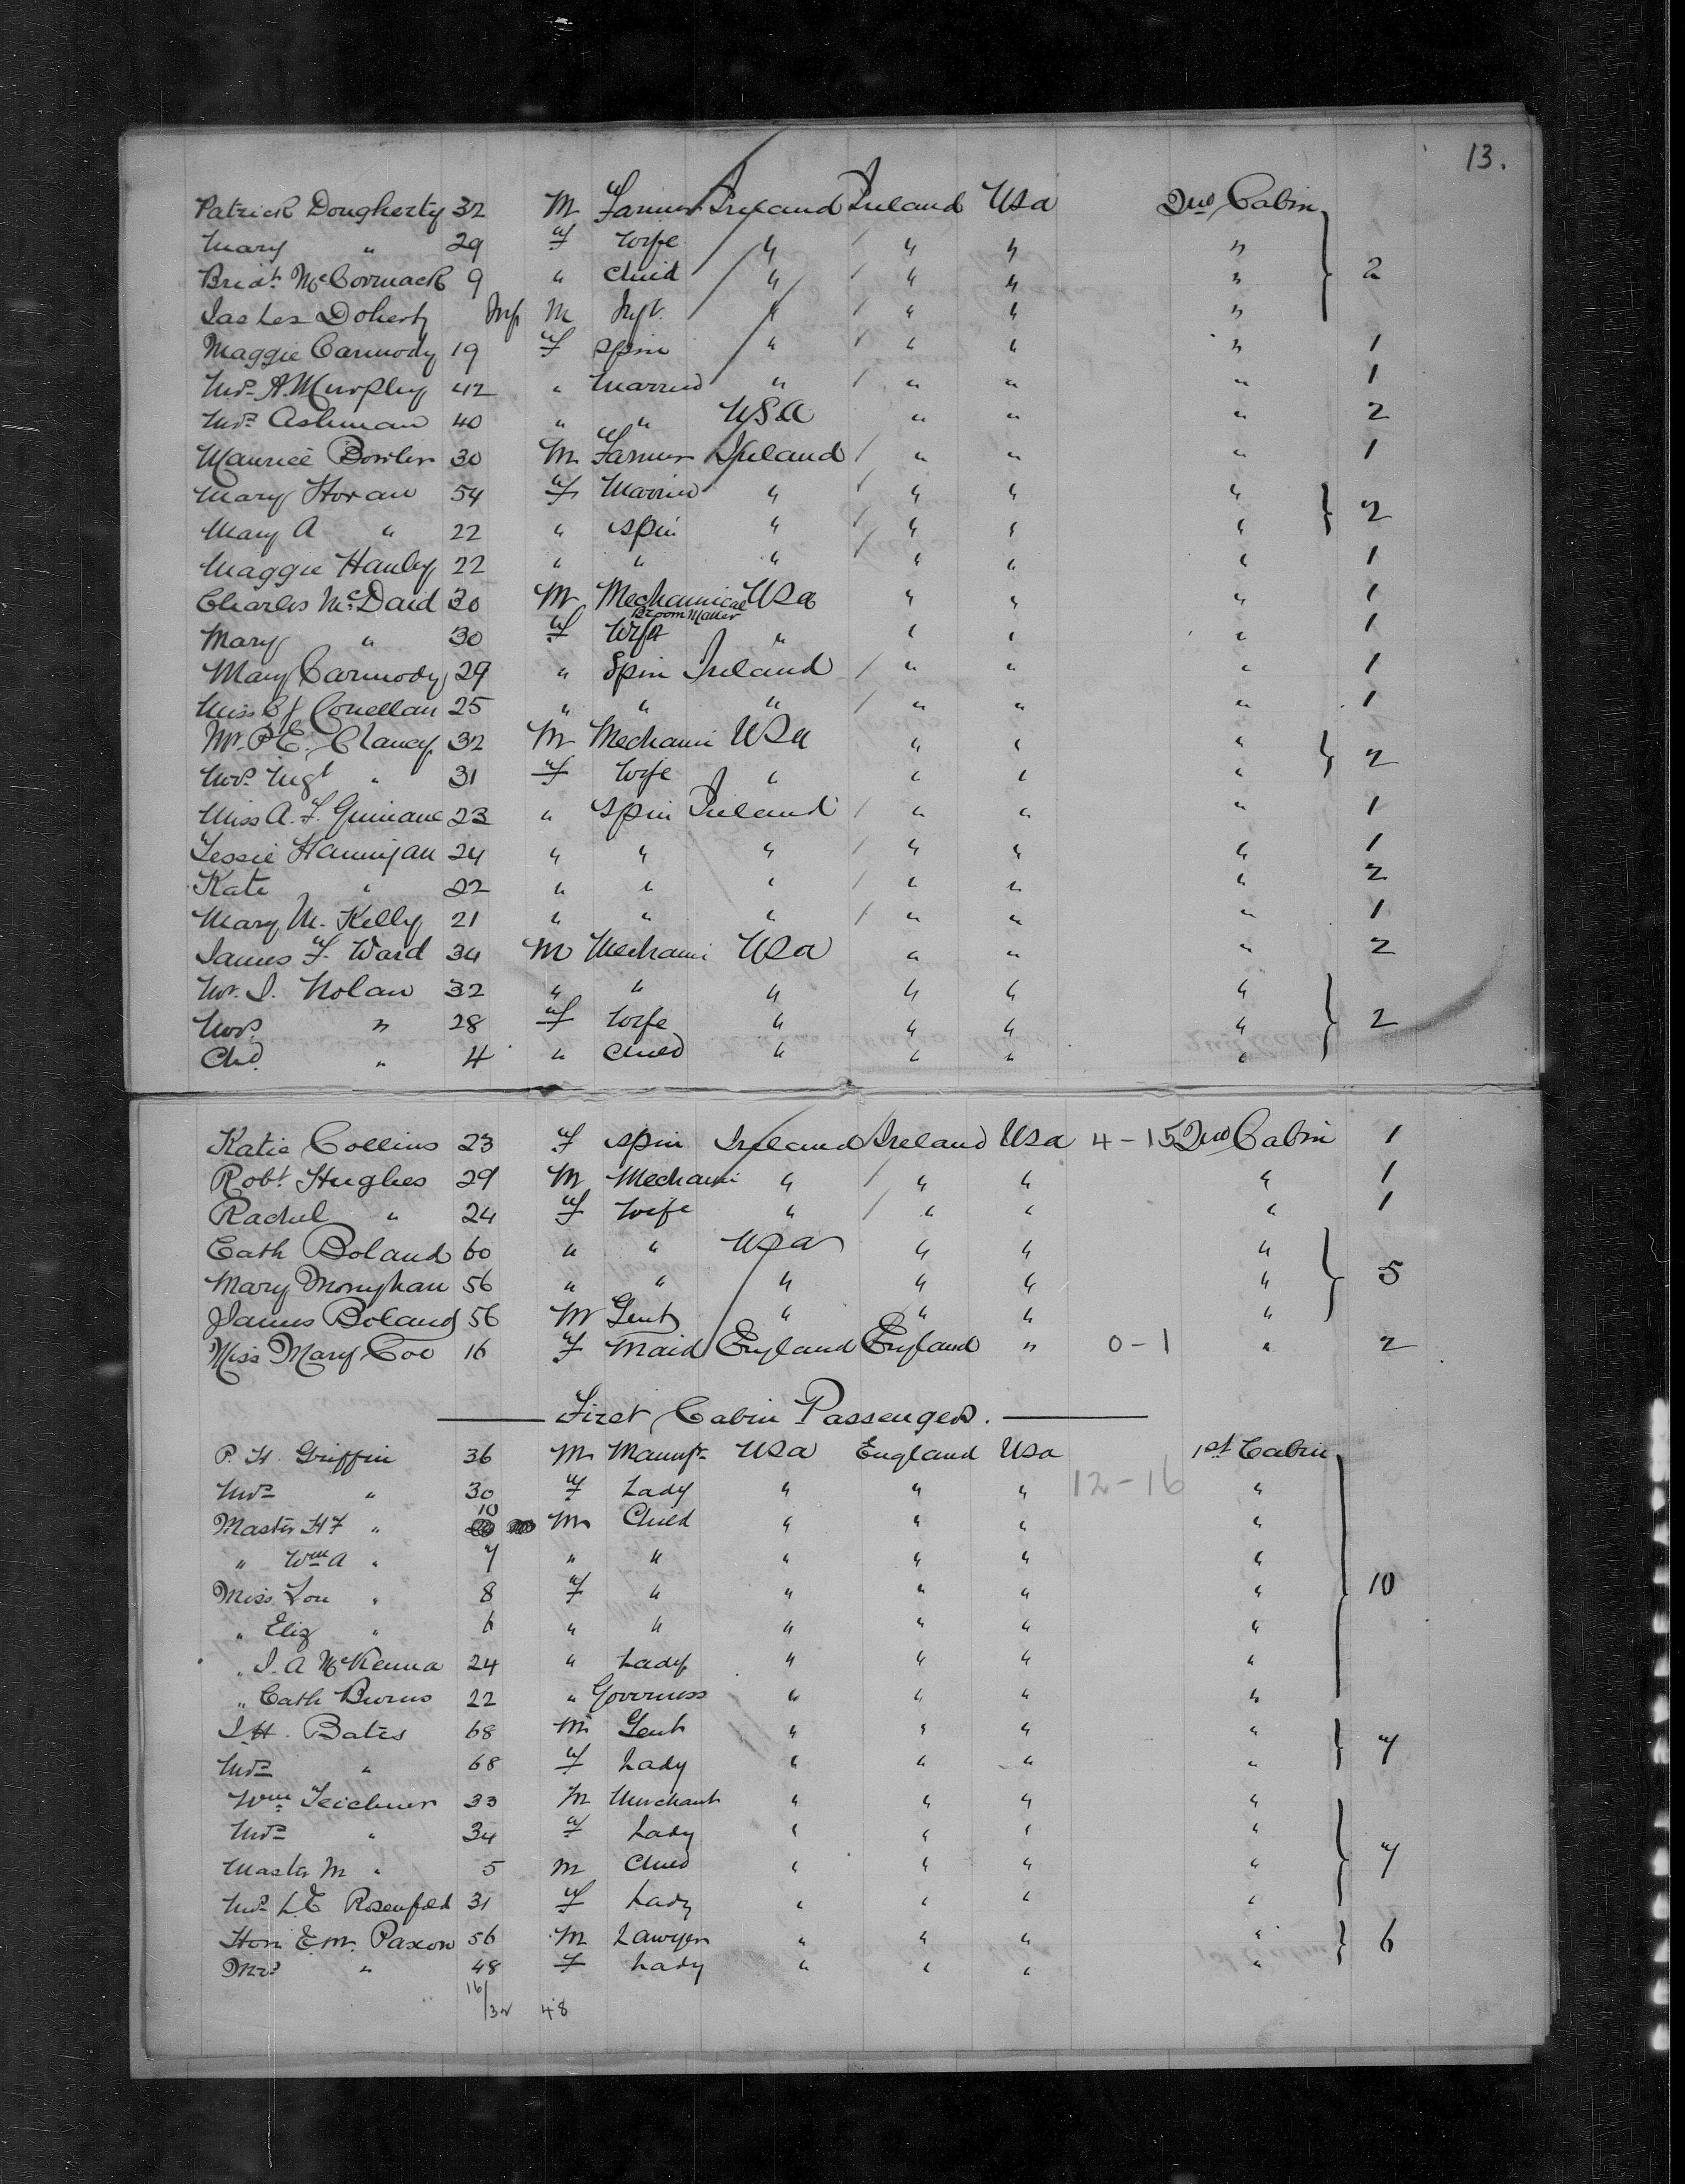 13.
Patrick Dougherty 32 M Farmer Ireland Ireland Usa 2nd Cabin
Mary " 29 F Wife " " " "
Bridt. McCormack 9 " Child " " " " 2
Doherty Inf M Inft. " " " "
Maggie Carmody 19 F Spin " " " " 1
Mrs. A. Murphy 42 " Married " " " " 1
Mrs. Ashman 40 " " USA " " " 2
Maurice Bowler 30 M Farmer Ireland " " " 1
Mary Horan 54 F Married " " " "
Mary A " 22 " Spin " " " " 2
Maggie Hanly 22 " " " " " " 1
Charles McDaid 30 M Mechanical Usa " " " 1
Broom Maker
Mary " 30 F Wife " " " " 1
Mary Carmody 29 " Spin Ireland " " " 1
Miss Conellan 25 " " " " " " 1
Mr. P. E. Clancy 32 M Mechani USa " " "
Mrs. Mgt " 31 F Wife " " " " 2
Miss A. F. Guinane 23 " Spin Ireland " " " 1
Jessie Hannigan 24 " " " " " " 1
Kate " 22 " " " " " " 2
Mary M. Kelly 21 " " " " " " 1
James F. Ward 34 M Mechani USa " " " 2
Mr. J. Nolan 32 " " " " " "
Mrs. " 28 F Wife " " " " 2
Chd. " 4 " Child " " " "
Katie Collins 23 F Spin Ireland Ireland Usa 4-15 2nd Cabin 1
Robt. Hughes 29 M Mechani " " " " 1
Rachel " 24 F Wife " " " " 1
Cath Boland 60 " " USa " " "
Mary Monyhan 56 " " " " " " 5
James Boland 56 M Gent " " " "
Miss Mary Coo 16 F Maid England England " 0-1 " 2
First Cabin Passengers.
P. H. Griffin 36 M Manufr. USa England Usa 1st Cabin
Mrs " 30 F Lady " " " 12-16 "
Master H F " 10 M Child " " " "
" Wm A " 7 " " " " " "
Miss Lou " 8 F " " " " " 10
" Eliz " 6 " " " " " "
" J. A McKenna 24 " Lady " " " "
" Cath Burns 22 " Governess " " " "
J. H. Bates 68 M Gent " " " "
Mrs " 68 F Lady " " " " 7
Wm. Teichner 33 M Merchant " " " "
Mrs " 34 F Lady " " " "
Master M " 5 M Child " " " " 7
Mrs. L. E Rosenfeld 31 F Lady " " " "
Hon E. M. Paxon 56 M Lawyer " " " " 6
Mrs " 48 F Lady " " " "
16/32 48